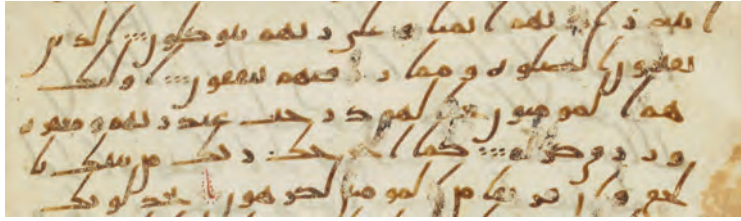 ايته زادتهم ايمنا و على ربهم يتوكلون الذين
يقيمون الصلوه و مما رزقنهم ينفقون اولئك
هم المومنون حقا لهم درجت عند ربهم ومغفره
ورزق كريم كما اخرجك ربك من بيتك با
لحق وان فريقا من المومنين لكرهون يجدلونك